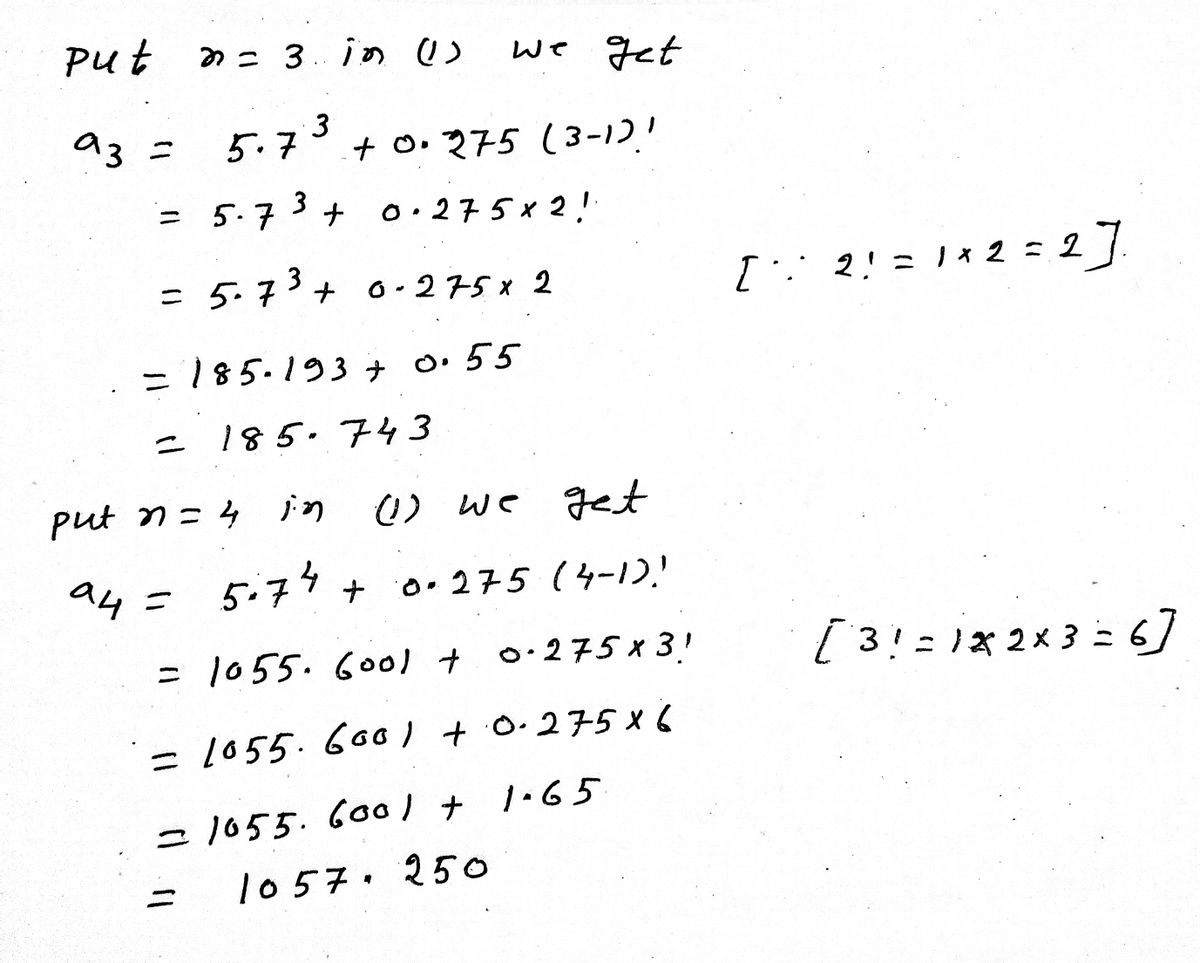 put n = 3 in (1) we get
a₃ = 5.7³ + 0.275 (3-1)!
= 5.7³ + 0.275 × 2!
= 5.7³ + 0.275 × 2 [∵ 2! = 1 × 2 = 2]
= 185.193 + 0.55
= 185.743
put n = 4 in (1) we get
a₄ = 5.7⁴ + 0.275 (4-1)!
= 1055.6001 + 0.275 × 3! [3! = 1 × 2 × 3 = 6]
= 1055.6001 + 0.275 × 6
= 1055.6001 + 1.65
= 1057.250